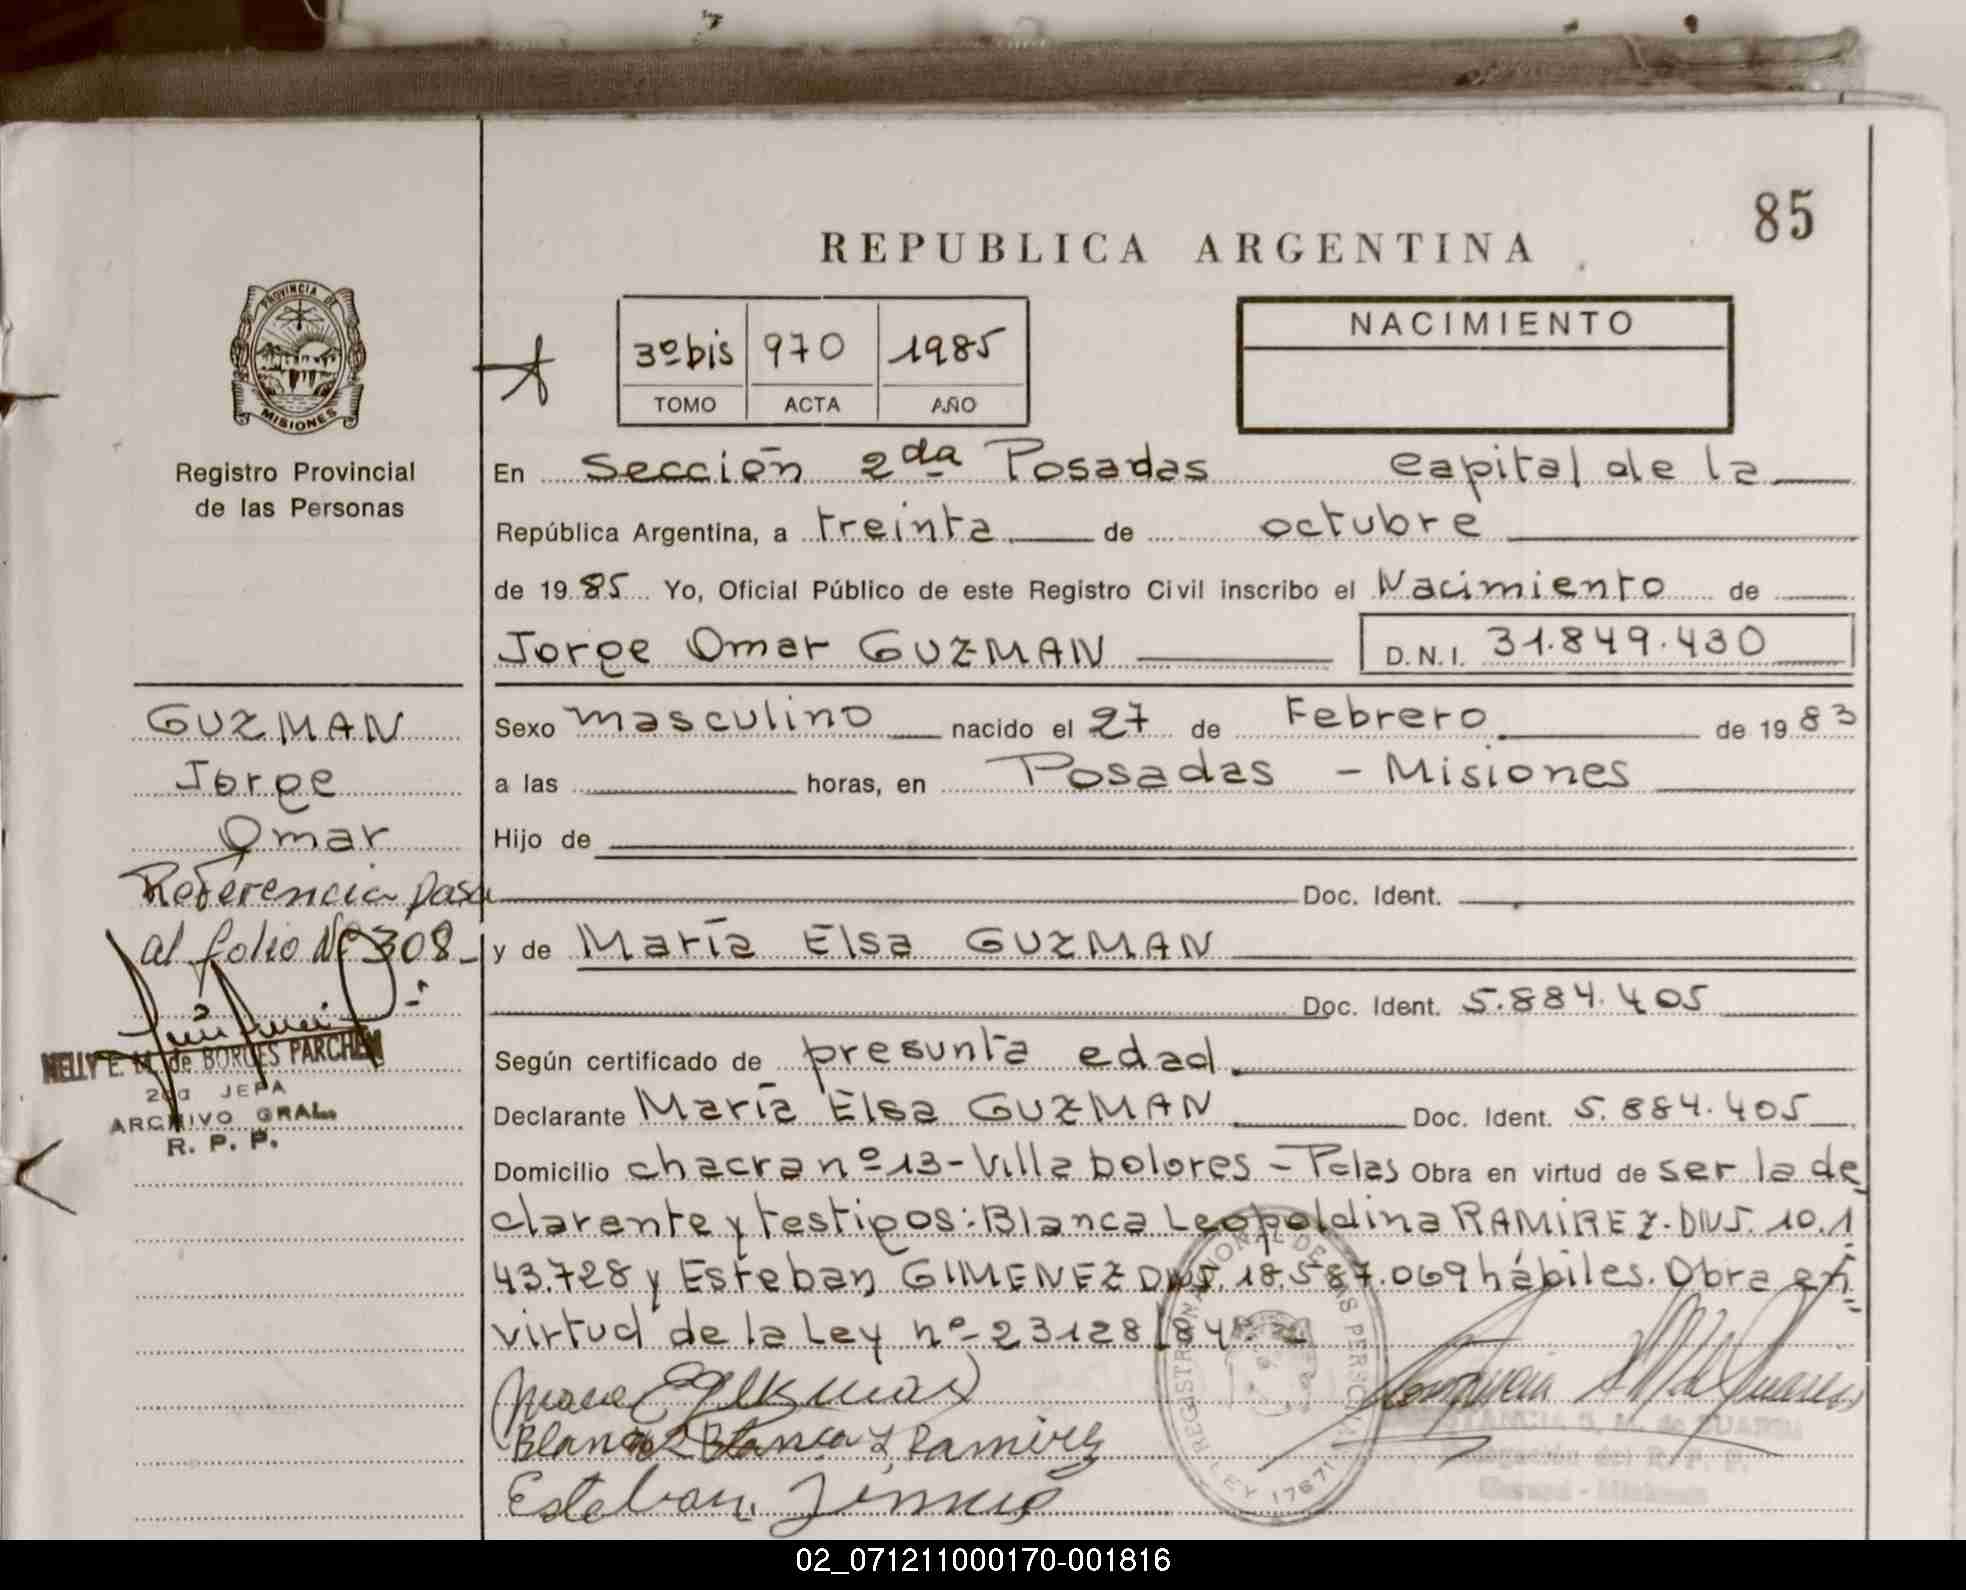 85
REPUBLICA ARGENTINA
PROVINCIA DE
MISIONES
Registro Provincial
de las Personas
3º bis 970 1985
TOMO ACTA AÑO
NACIMIENTO
En Sección 2da Posadas capital de la
República Argentina, a treinta de octubre
de 1985 Yo, Oficial Público de este Registro Civil inscribo el Nacimiento de
Jorge Omar GUZMAN D.N.I. 31.849.430
GUZMAN
Jorge
Omar
Referencia pasa
al folio Nº 308
NELLY E. M. de BORGES PARCHEM
2da JEFA
ARCHIVO GRAL.
R. P. P.
Sexo masculino nacido el 27 de Febrero de 1983
a las horas, en Posadas - Misiones
Hijo de
Doc. Ident.
y de María Elsa GUZMAN
Doc. Ident. 5.884.405
Según certificado de presunta edad
Declarante María Elsa GUZMAN Doc. Ident. 5.884.405
Domicilio chacra nº 13 - Villa Dolores - Pdas Obra en virtud de ser la de
clarante y testigos: Blanca Leopoldina RAMIREZ. DNI. 10.1
43.728 y Esteban GIMENEZ DNI. 18.587.069 hábiles. Obra en
virtud de la Ley nº 23128/84
Blanca L Ramirez
Esteban
REGISTRO NACIONAL DE LAS PERSONAS
LEY 17671
02_071211000170-001816